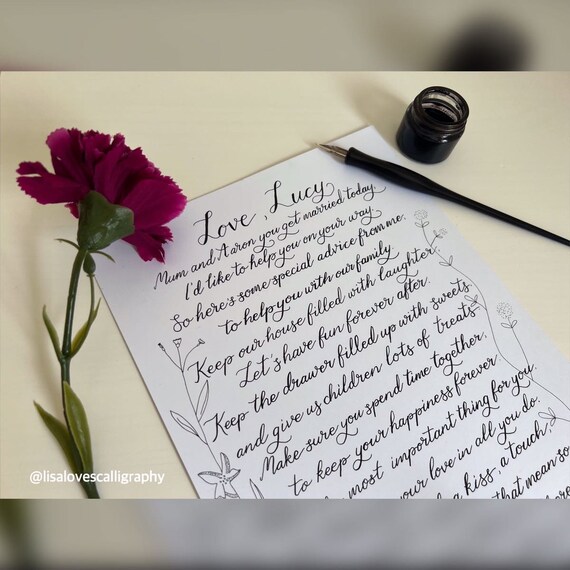 Love, Lucy
Mum and Aaron you get married today,
I'd like to help you on your way
So here's some special advice from me,
to help you with our family.
Keep our house filled with laughter,
Let's have fun forever after.
Keep the drawer filled up with sweets
and give us children lots of treats
Make sure you spend time together,
to keep your happiness forever
most important thing for you.
your love in all you do.
a kiss, a touch,
that mean so
@lisalovescalligraphy